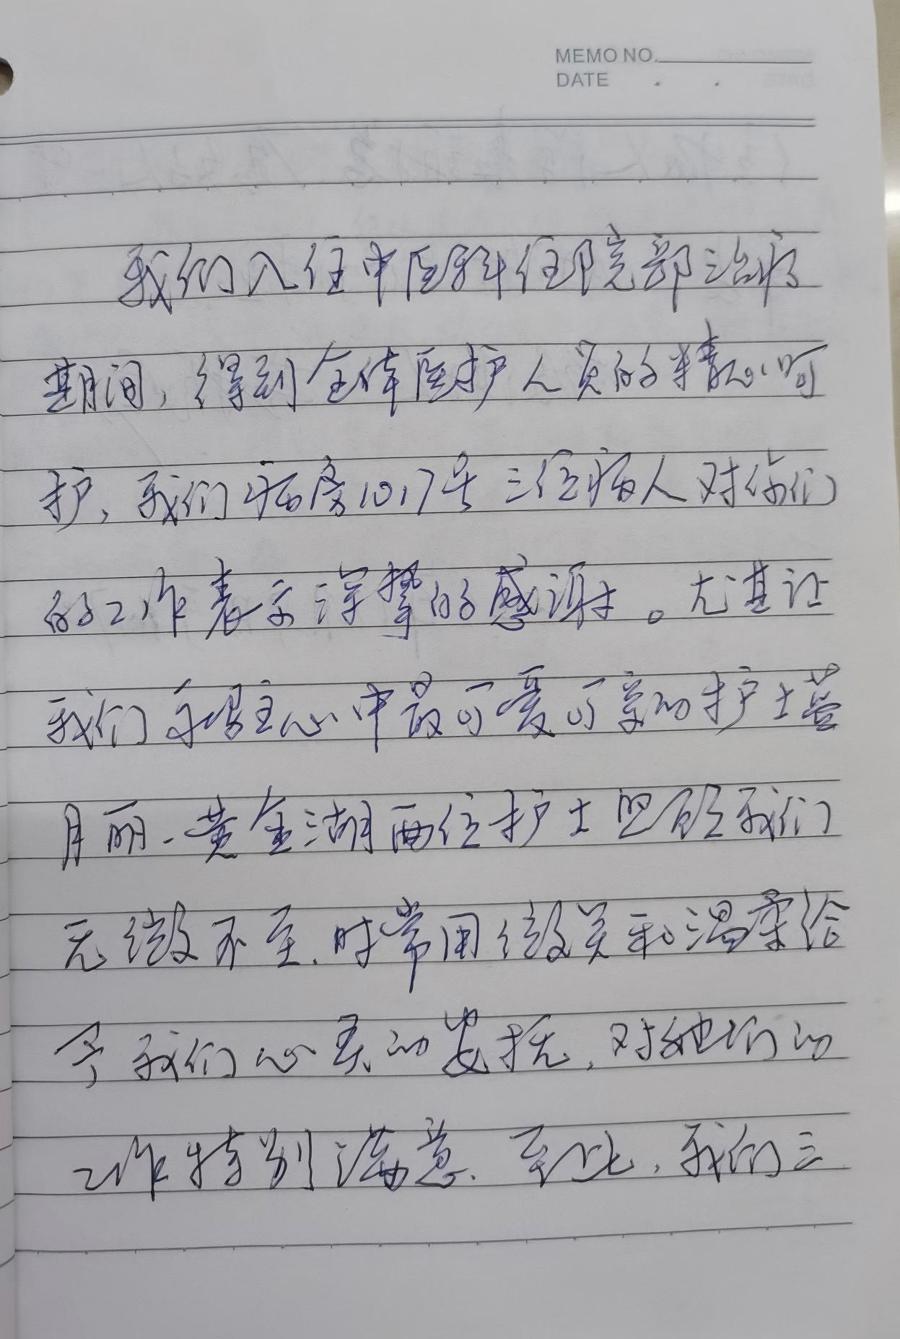 MEMO NO.
DATE . .
我们入住中医科住院部治疗
期间,得到全体医护人员的精心呵
护,我们病房1017号三位病人对你们
的工作表示深挚的感谢。尤其让
我们病号心中最可爱可亲的护士
月丽、黄金湖两位护士照顾我们
无微不至,时常用微笑和温柔给
予我们心灵的安抚,对她们的
工作特别满意、至此,我们三